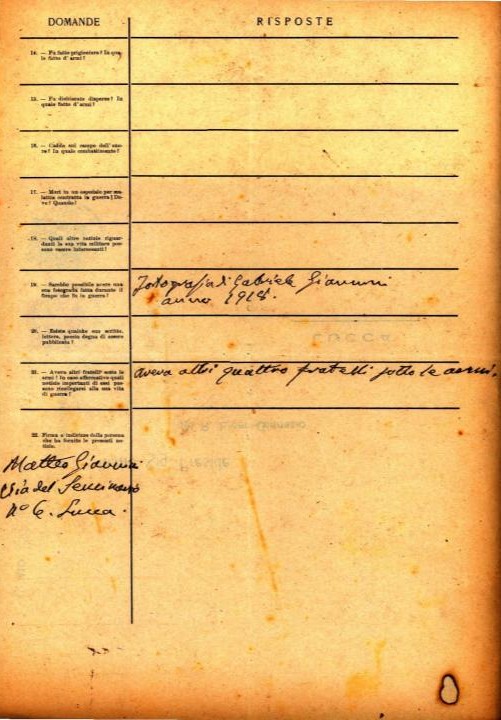 DOMANDE
RISPOSTE
14. — Fu fatto prigioniero? In qua-
le fatto d'armi?
15. — Fu dichiarato disperso? In
quale fatto d'armi?
16. — Cadde sul campo dell'ono-
re? In quale combattimento?
17. — Morì in un ospedale per ma-
lattia contratta in guerra? Do-
ve? Quando?
18. — Quali altre notizie riguar-
danti la sua vita militare pos-
sono essere interessanti?
19. — Sarebbe possibile avere una
sua fotografia fatta durante il
tempo che fu in guerra?
Fotografia di Gabriele Giannini
anno 1918.
20. — Esiste qualche suo scritto,
lettera, poesia degna di essere
pubblicata?
LUCCA
21. — Aveva altri fratelli sotto le
armi? In caso affermativo quali
notizie importanti di essi pos-
sono ricollegarsi alla sua vita
di guerra?
aveva altri quattro fratelli sotto le armi.
22. Firma e indirizzo della persona
che ha fornito le presenti no-
tizie.
Matteo Giannini
Via del Seminario
N° 6. Lucca.